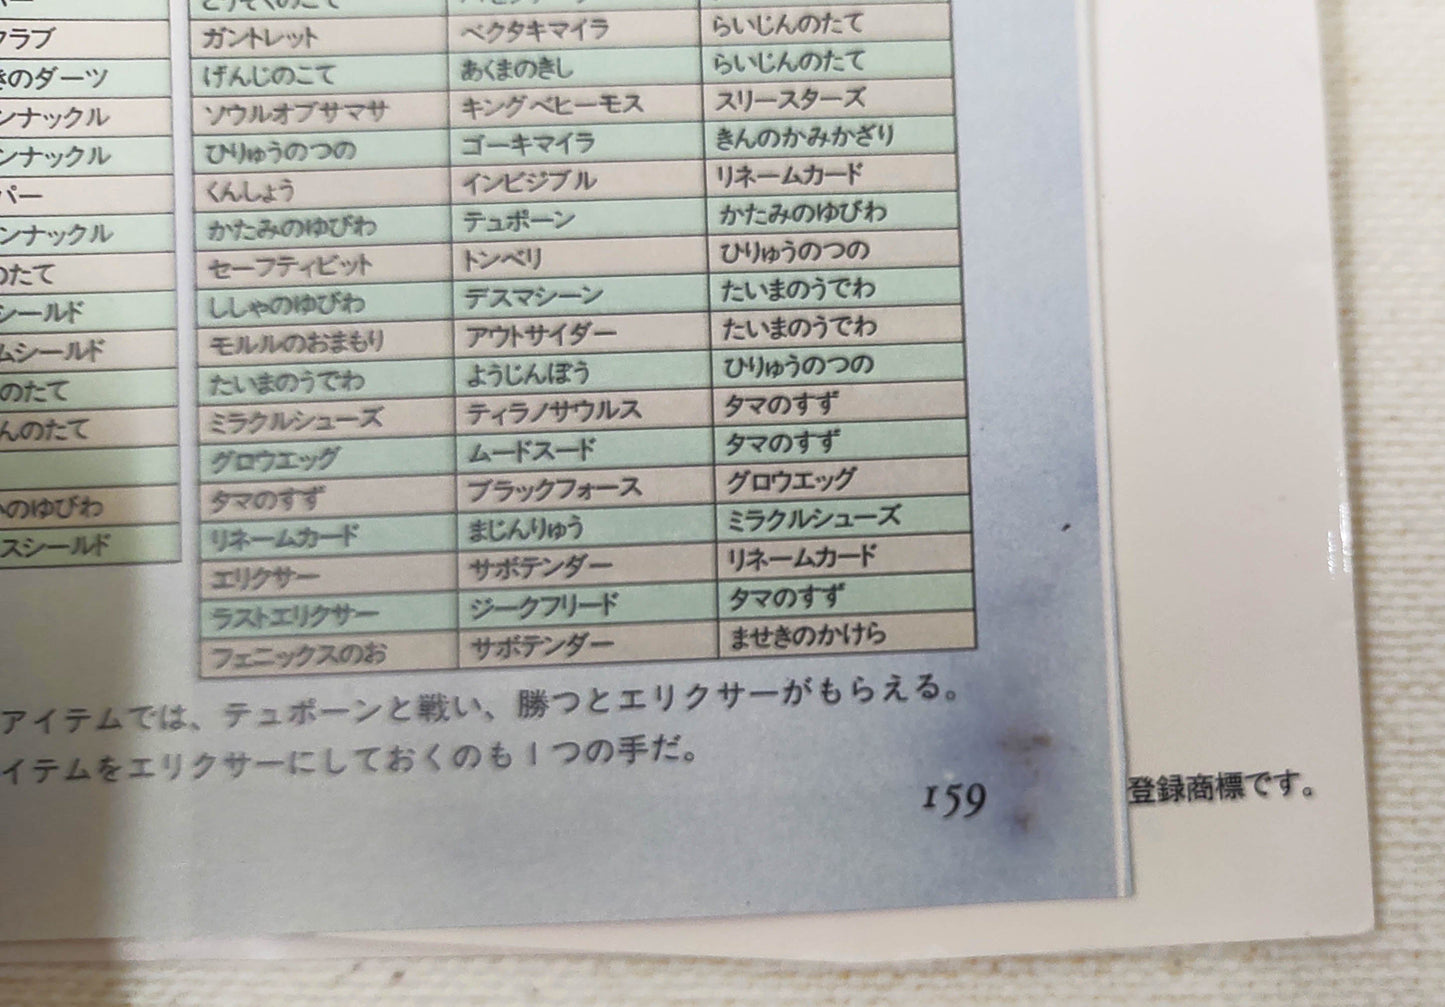 クラブ
きのダーツ
ンナックル
ンナックル
パー
ンナックル
のたて
シールド
ムシールド
のたて
んのたて
のゆびわ
スシールド
ガントレット ベクタキマイラ らいじんのたて
げんじのこて あくまのきし らいじんのたて
ソウルオブサマサ キングベヒーモス スリースターズ
ひりゅうのつの ゴーキマイラ きんのかみかざり
くんしょう インビジブル リネームカード
かたみのゆびわ テュポーン かたみのゆびわ
セーフティビット トンベリ ひりゅうのつの
ししゃのゆびわ デスマシーン たいまのうでわ
モルルのおまもり アウトサイダー たいまのうでわ
たいまのうでわ ようじんぼう ひりゅうのつの
ミラクルシューズ ティラノサウルス タマのすず
グロウエッグ ムードスード タマのすず
タマのすず ブラックフォース グロウエッグ
リネームカード まじんりゅう ミラクルシューズ
エリクサー サボテンダー リネームカード
ラストエリクサー ジークフリード タマのすず
フェニックスのお サボテンダー ませきのかけら
アイテムでは、テュポーンと戦い、勝つとエリクサーがもらえる。
イテムをエリクサーにしておくのも1つの手だ。
159
登録商標です。